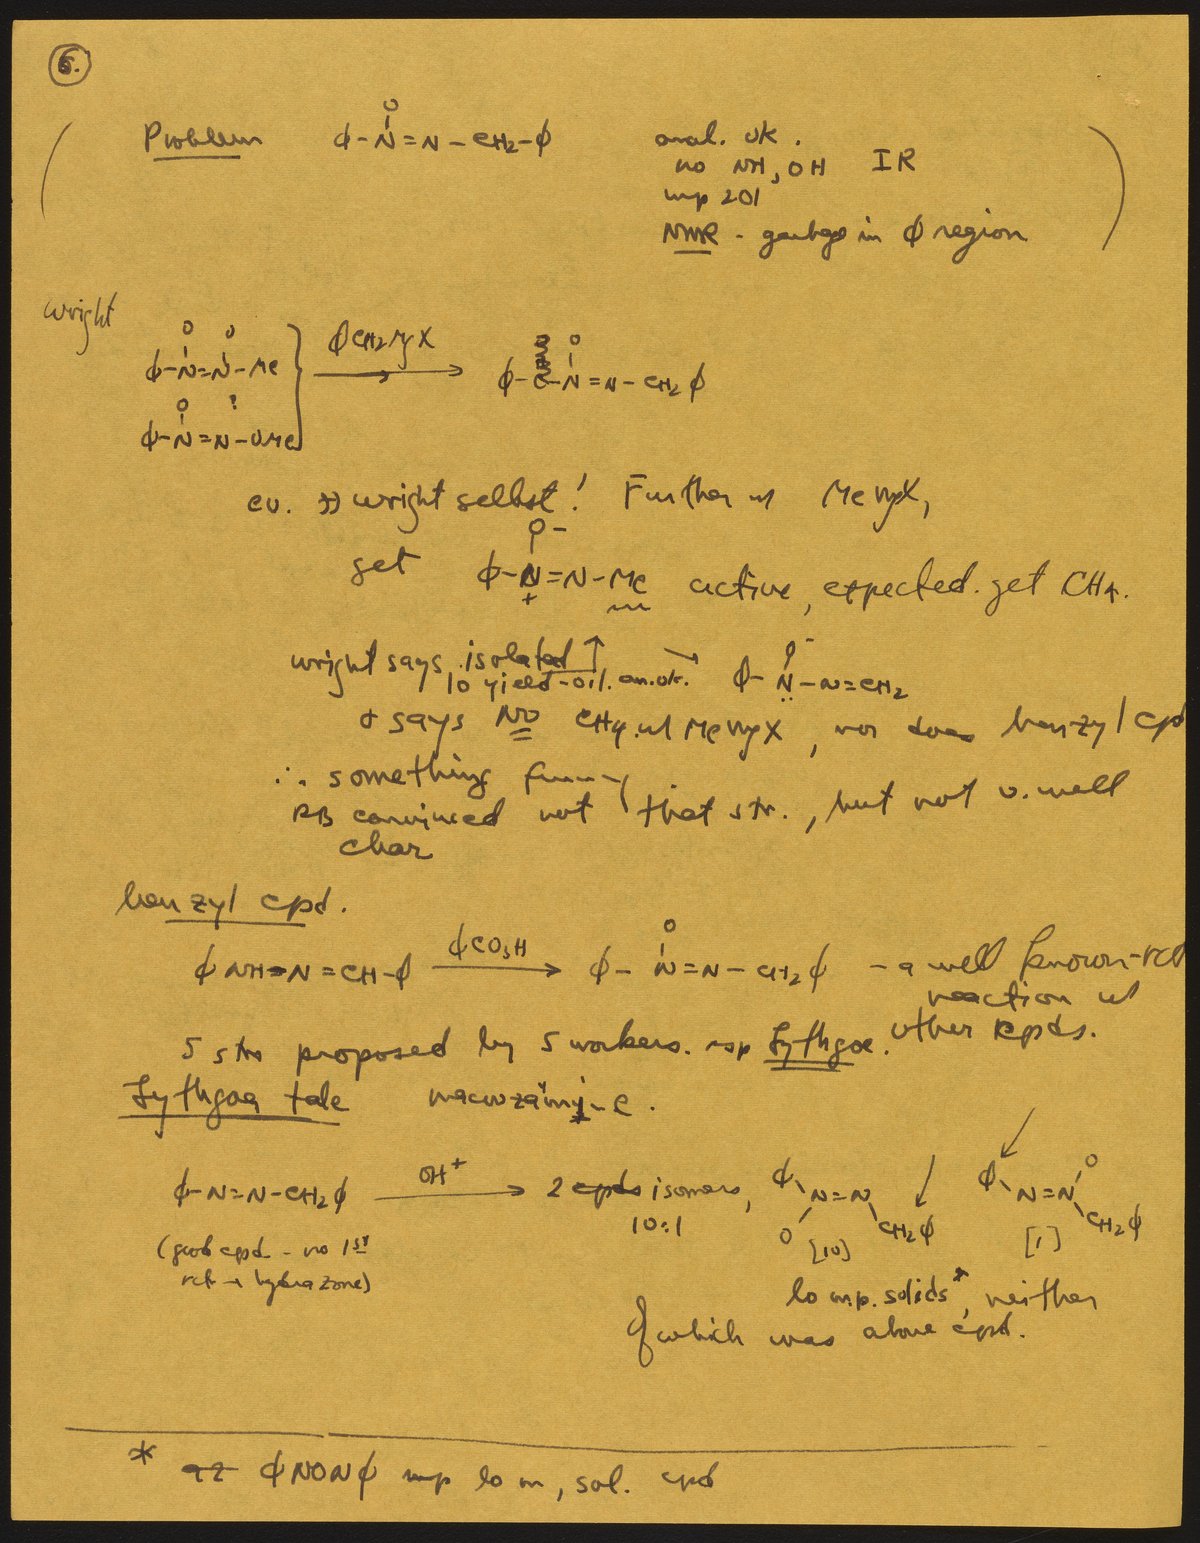 6.
Problem ϕ-N(O)=N-CH2-ϕ anal. ok.
no NH, OH IR
mp 201
NMR - garbage in ϕ region
Wright
ϕ-N(O)=N(O)-Me
ϕCH2MgX
ϕ-N(O)=N-OMe ?
ϕ-N(O)=N-CH2ϕ
ev. Wright selbst! Further w MeMgX,
get ϕ-N(O-)(+)=N-Me active, expected. get CH4.
Wright says isolated ↑
10 yield-oil. an.ok. → ϕ-N(O-)-N=CH2
& says NO CH4 w/ MeMgX, nor does benzyl cpd
∴ something funny
RB convinced not that str., but not v. well
char
benzyl cpd.
ϕNH-N=CH-ϕ ϕCO3H → ϕ-N(O)=N-CH2ϕ - a well known rct
reaction w
other cpds.
5 strs proposed by 5 workers. esp Lythgoe.
Lythgoe tale macrozamine.
ϕ-N=N-CH2ϕ OH+ → 2 isomers,
10:1
ϕ N=N O CH2ϕ [10]
ϕ N=N O CH2ϕ [1]
(good cpd - no 1st
rct → hydrazone)
lo m.p. solids*, neither
of which was above cpd.
* ϕNONϕ mp lo m, sol. cpd